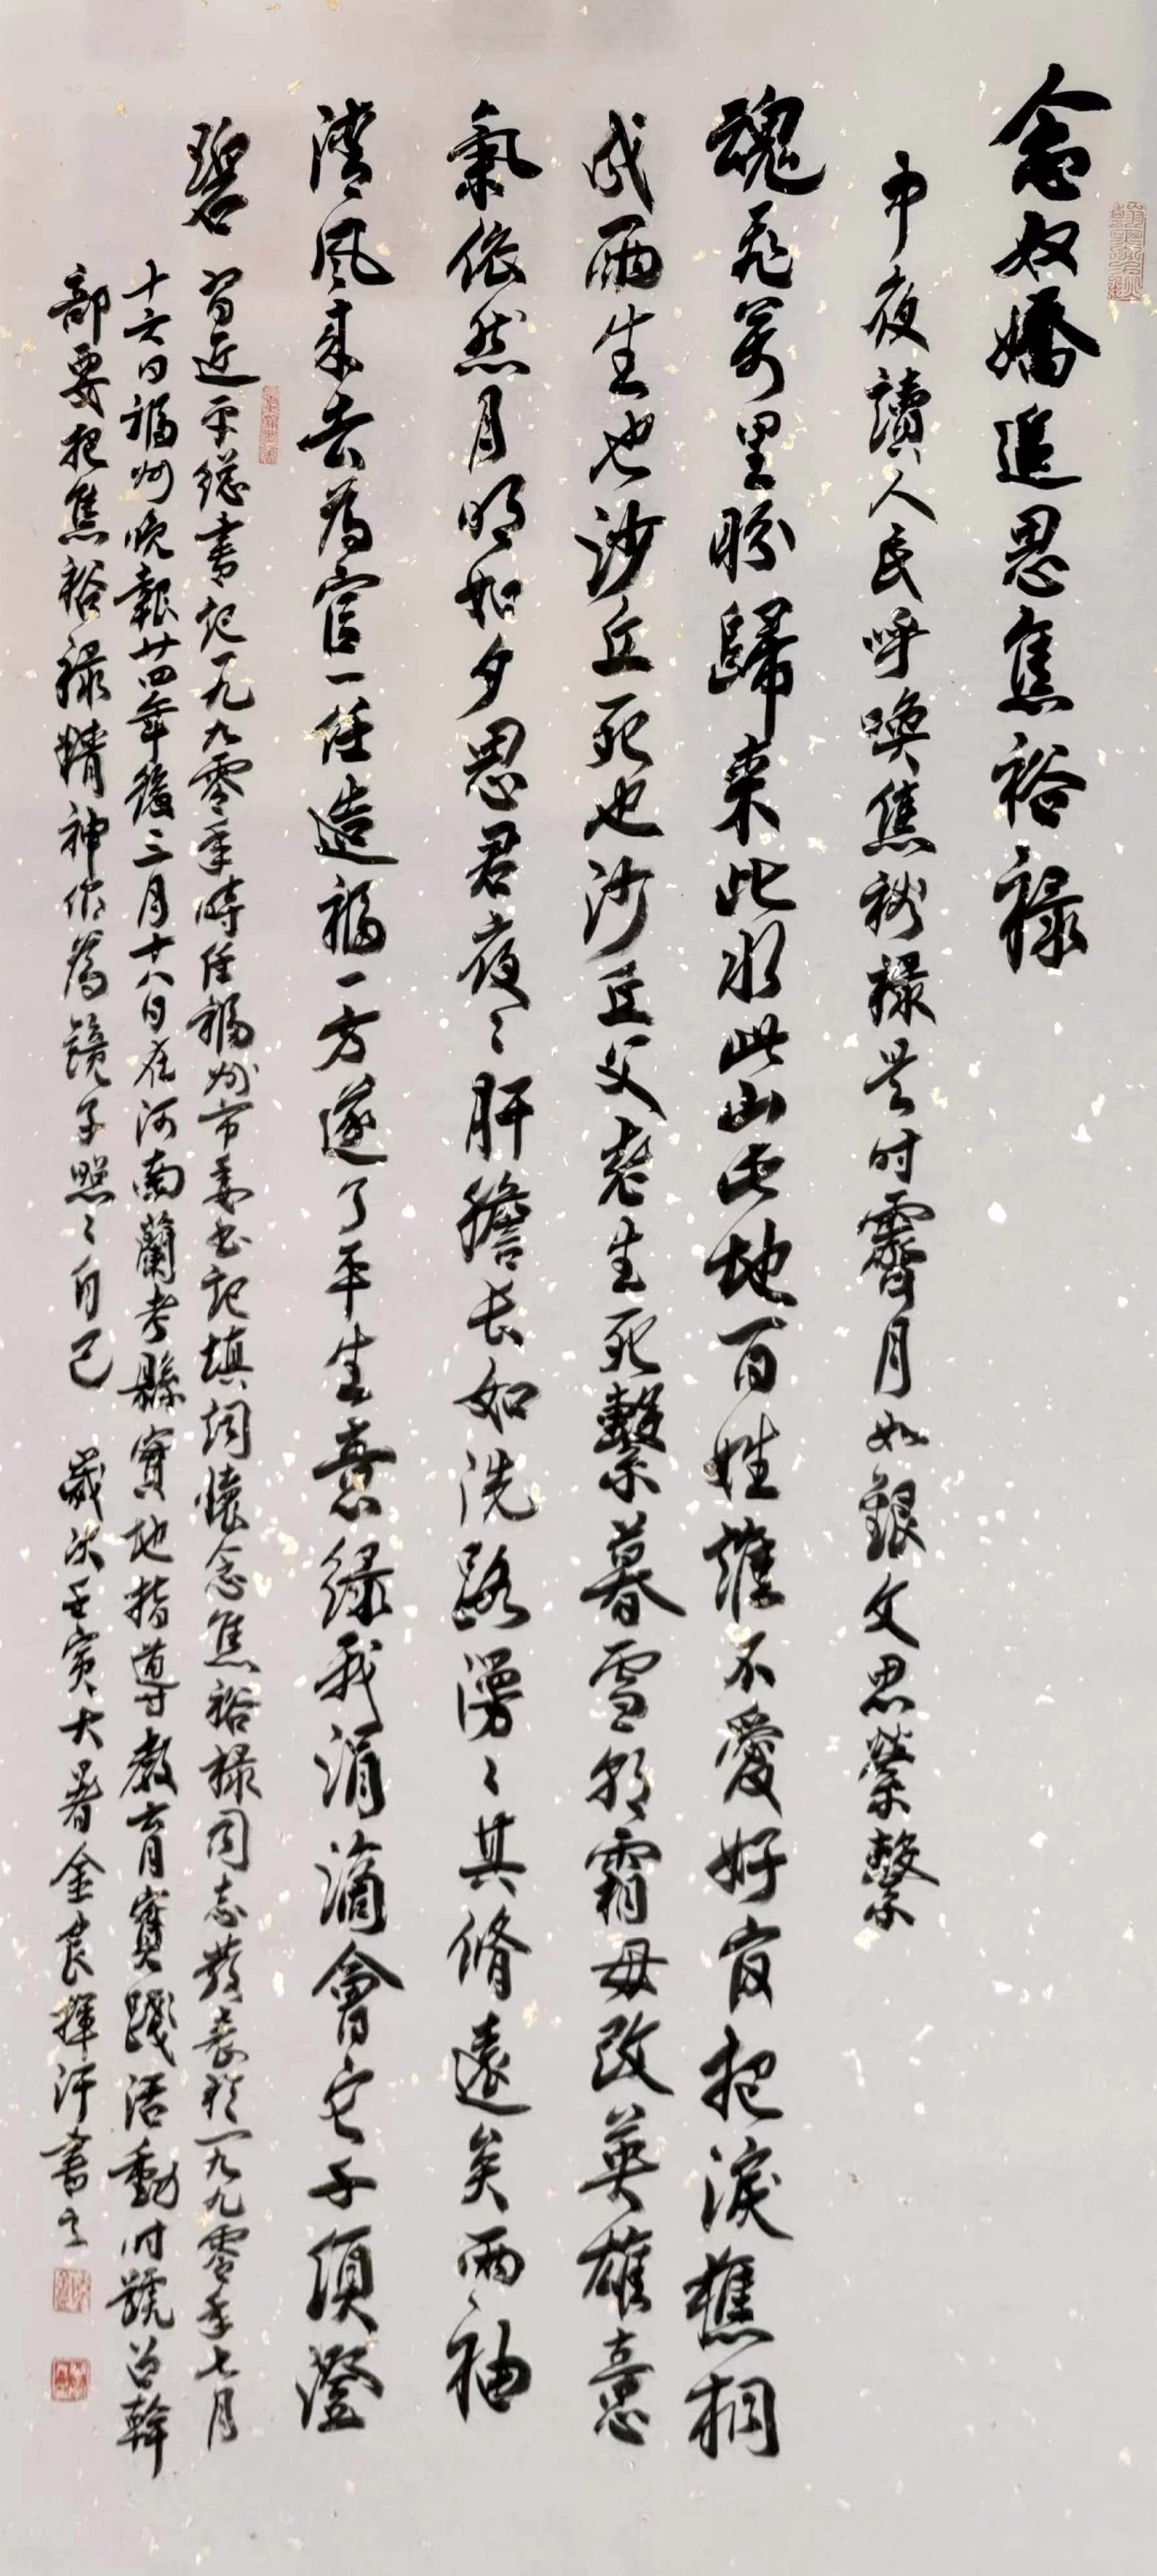 念奴嬌追思焦裕祿
中夜讀人民呼喚焦裕祿是时霽月如銀文思縈繫
魂飛萬里盼歸来此水此山此地百姓誰不愛好官把淚焦桐
成雨生也沙丘死也沙丘父老生死繫暮雪朝霜毋改英雄意
氣依然月明如夕思君夜〻肝膽长如洗路漫〻其脩遠矣兩袖
清風来去為官一任造福一方遂了平生意绿我涓滴會它千頃澄
碧 習近平總書記一九九零年時任福州市委书記填詞懷念焦裕祿同志發表於一九九零年七月
十六日福州晚報廿四年後三月十八日在河南蘭考縣實地指導教育實踐活動时號召幹
部要把焦裕祿精神作為鏡子照〻自己 歲次壬寅大暑金良揮汗書之